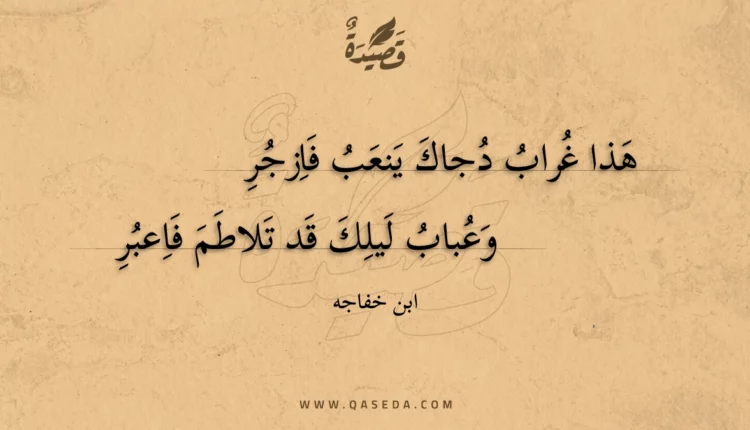 قَصِيدَةٌ
هَذا غُرابُ دُجاكَ يَنعَبُ فَاِزجُرِ
وَعُبابُ لَيلِكَ قَد تَلاطَمَ فَاِعبُرِ
ابن خفاجه
WWW.QASEDA.COM